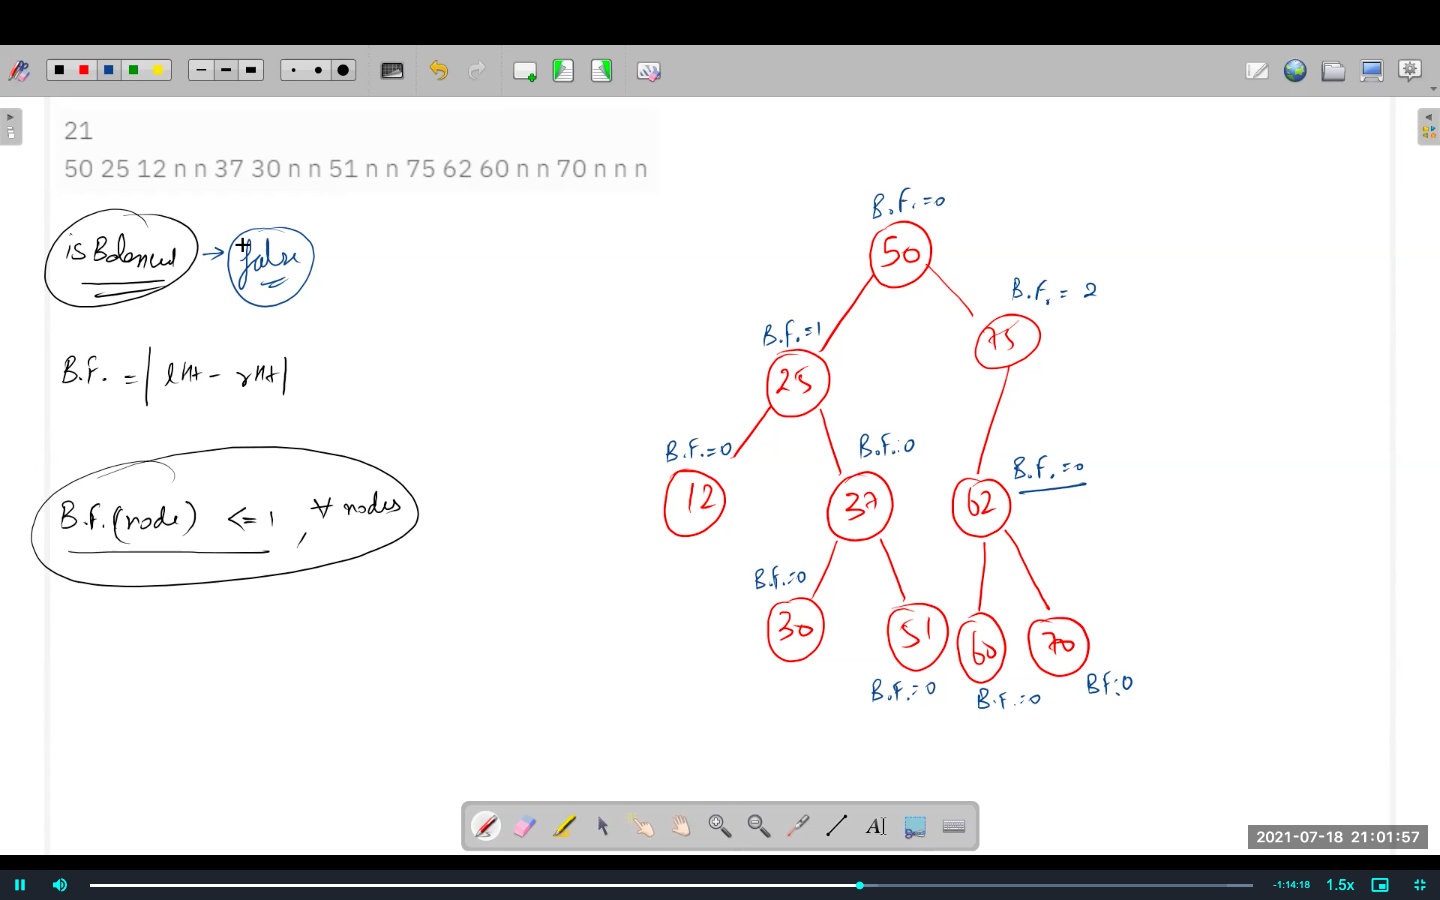 21
50 25 12 n n 37 30 n n 51 n n 75 62 60 n n 70 n n n
isBalanced → false
B.F. = | lht - rht |
B.F.(node) <= 1, ∀ nodes
B.F. = 0
50
B.F. = 2
75
B.F. = 1
25
B.F. = 0
12
B.F. : 0
37
B.F. = 0
62
B.F. = 0
30
51
B.F. = 0
60
B.F. = 0
70
BF : 0
AI
2021-07-18 21:01:57
-1:14:18 1.5x